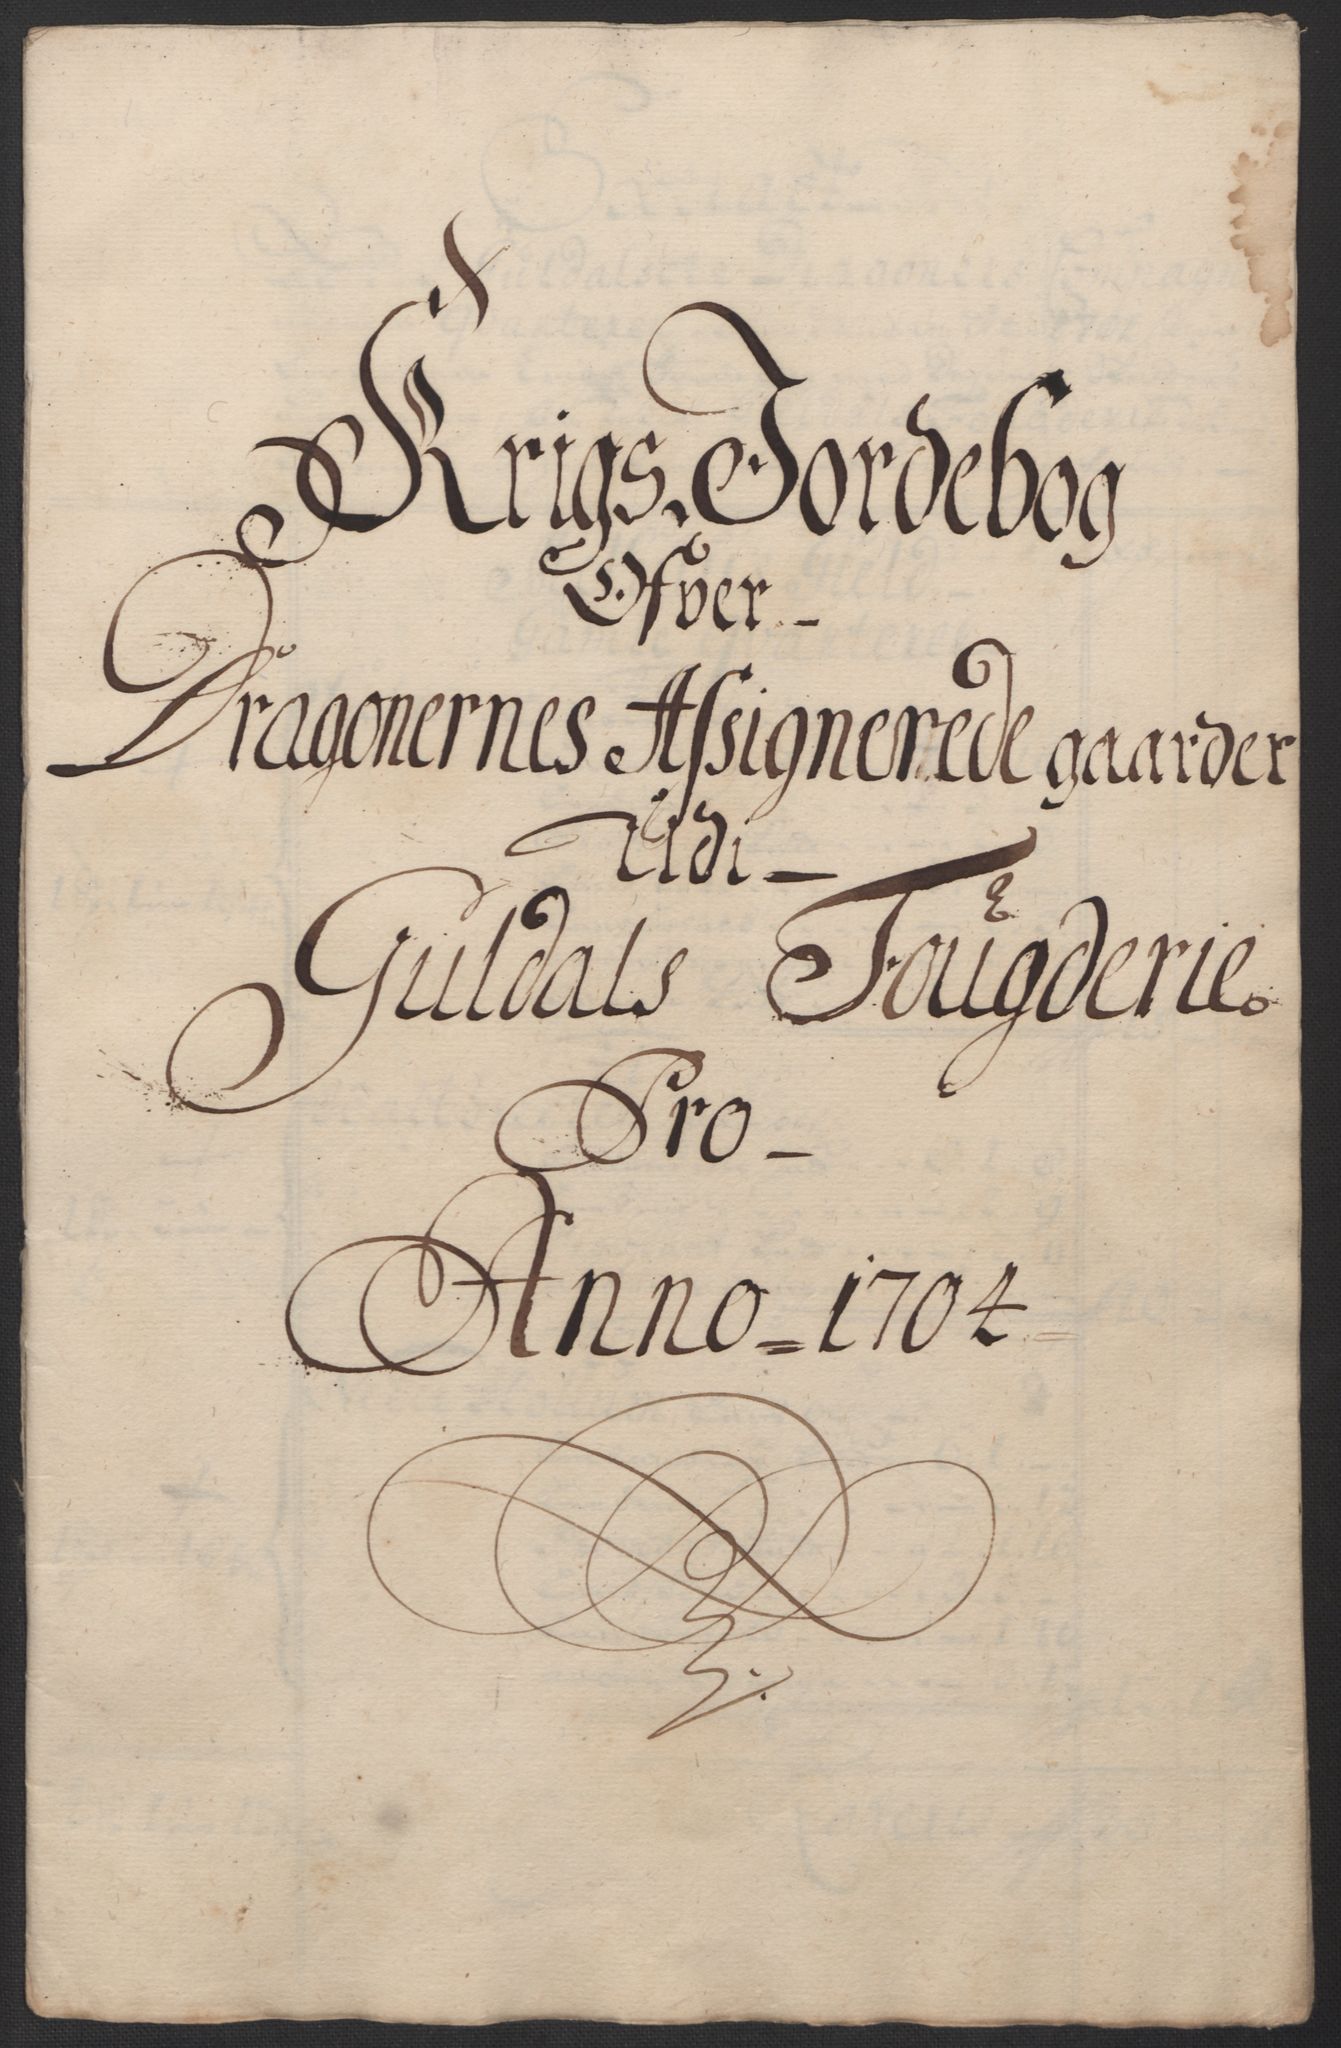 Krigs Jordebog
Ofver
Dragonernes Assignerede gaarder
Udi
Guldals Fougderie.
Pro
Anno 1704